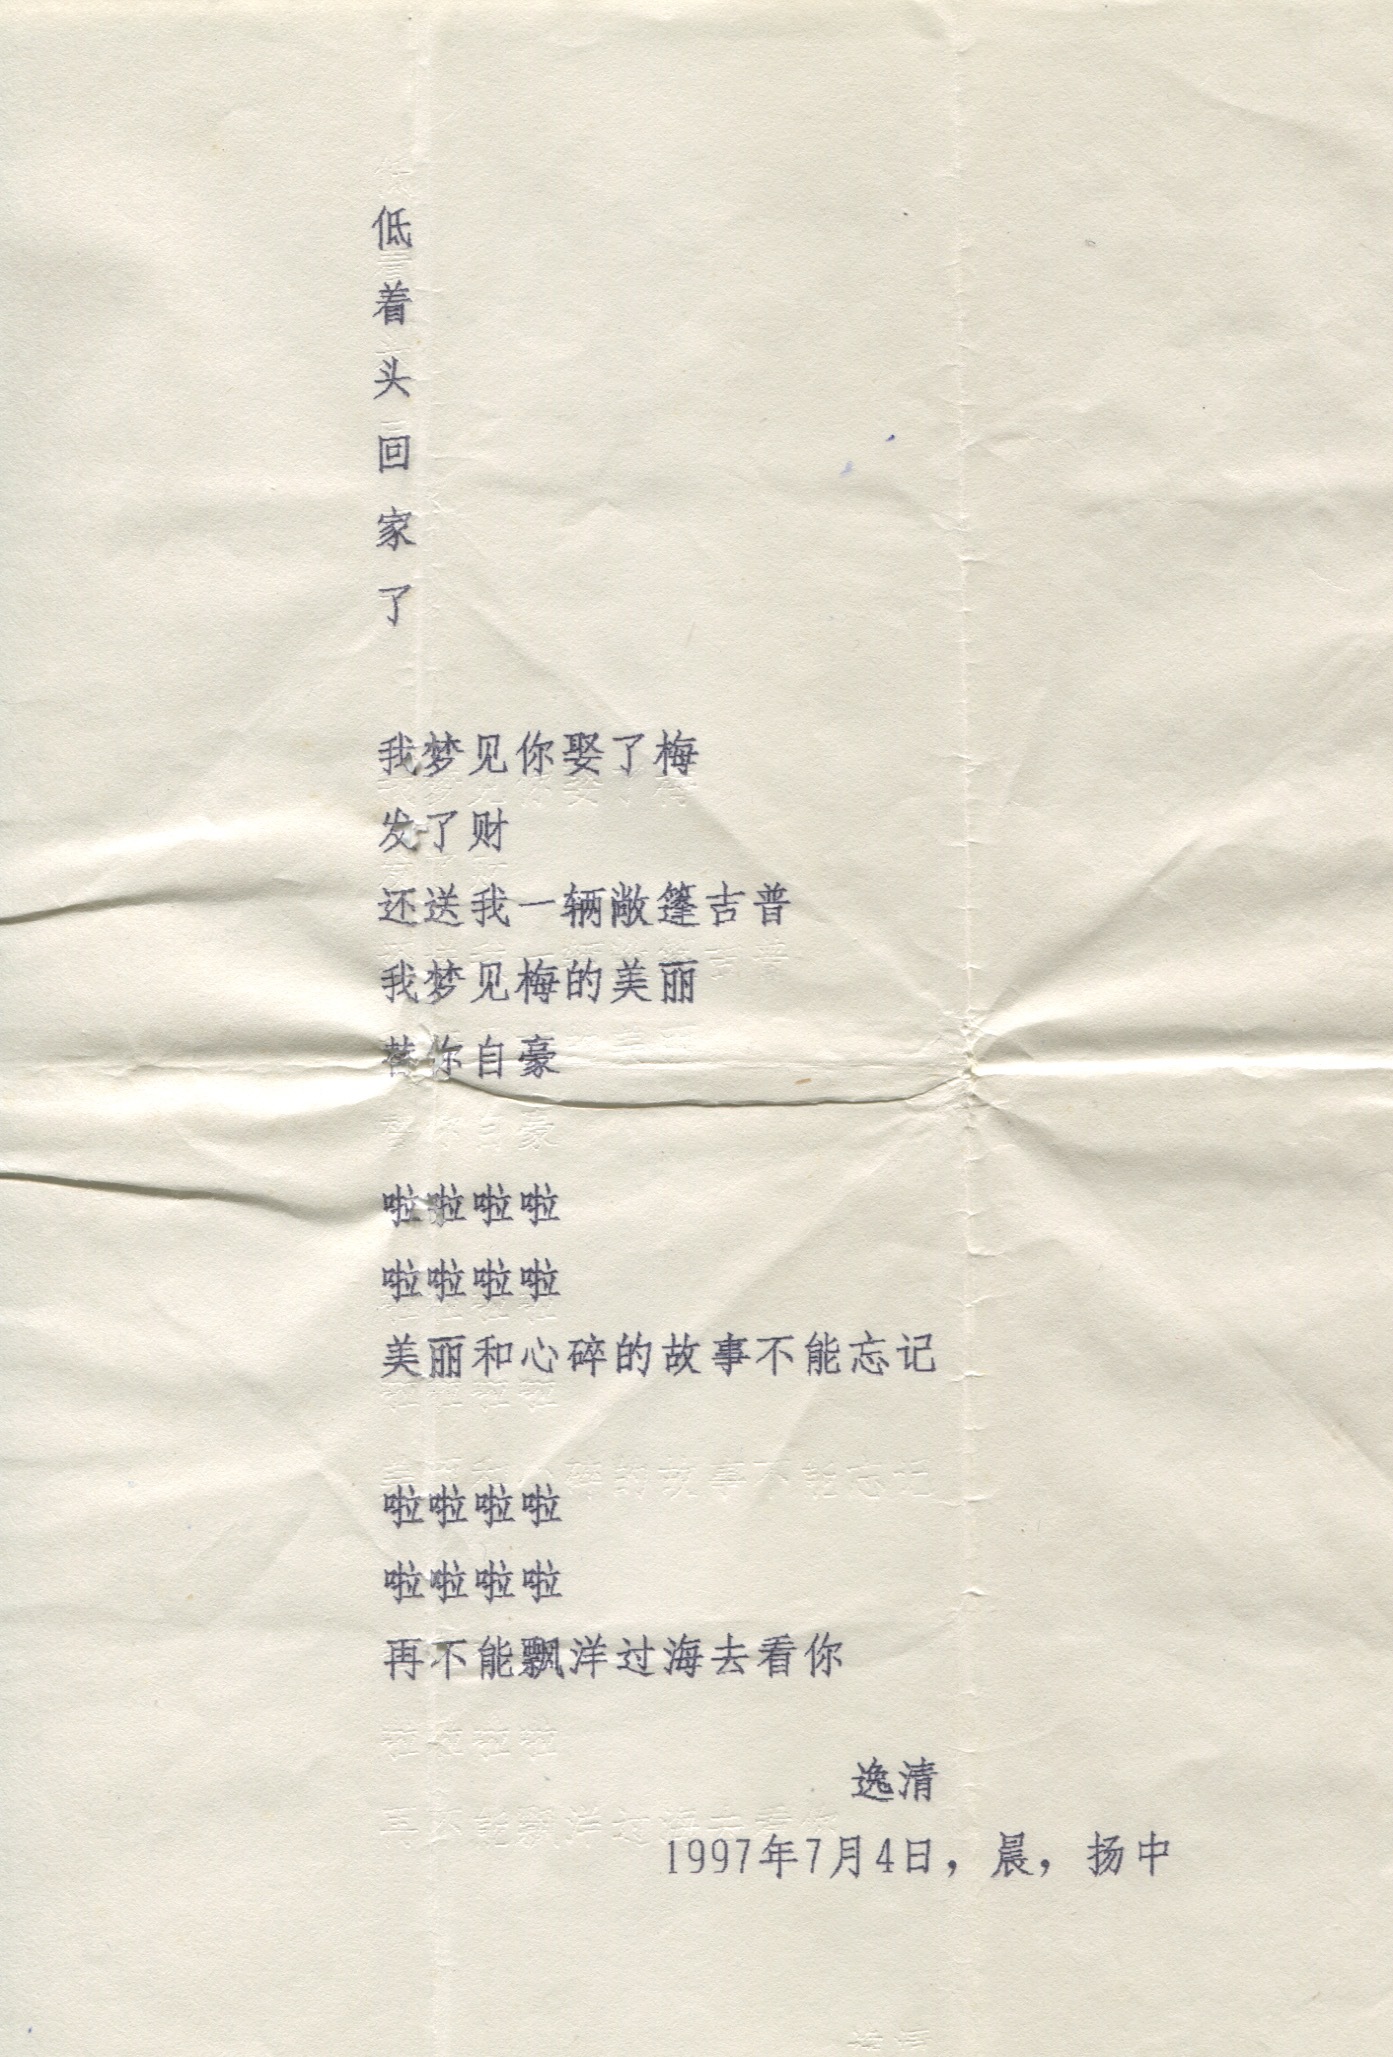 低
着
头
回
家
了
我梦见你娶了梅
发了财
还送我一辆敞篷吉普
我梦见梅的美丽
替你自豪
啦啦啦啦
啦啦啦啦
美丽和心碎的故事不能忘记
啦啦啦啦
啦啦啦啦
再不能飘洋过海去看你
逸清
1997年7月4日，晨，扬中